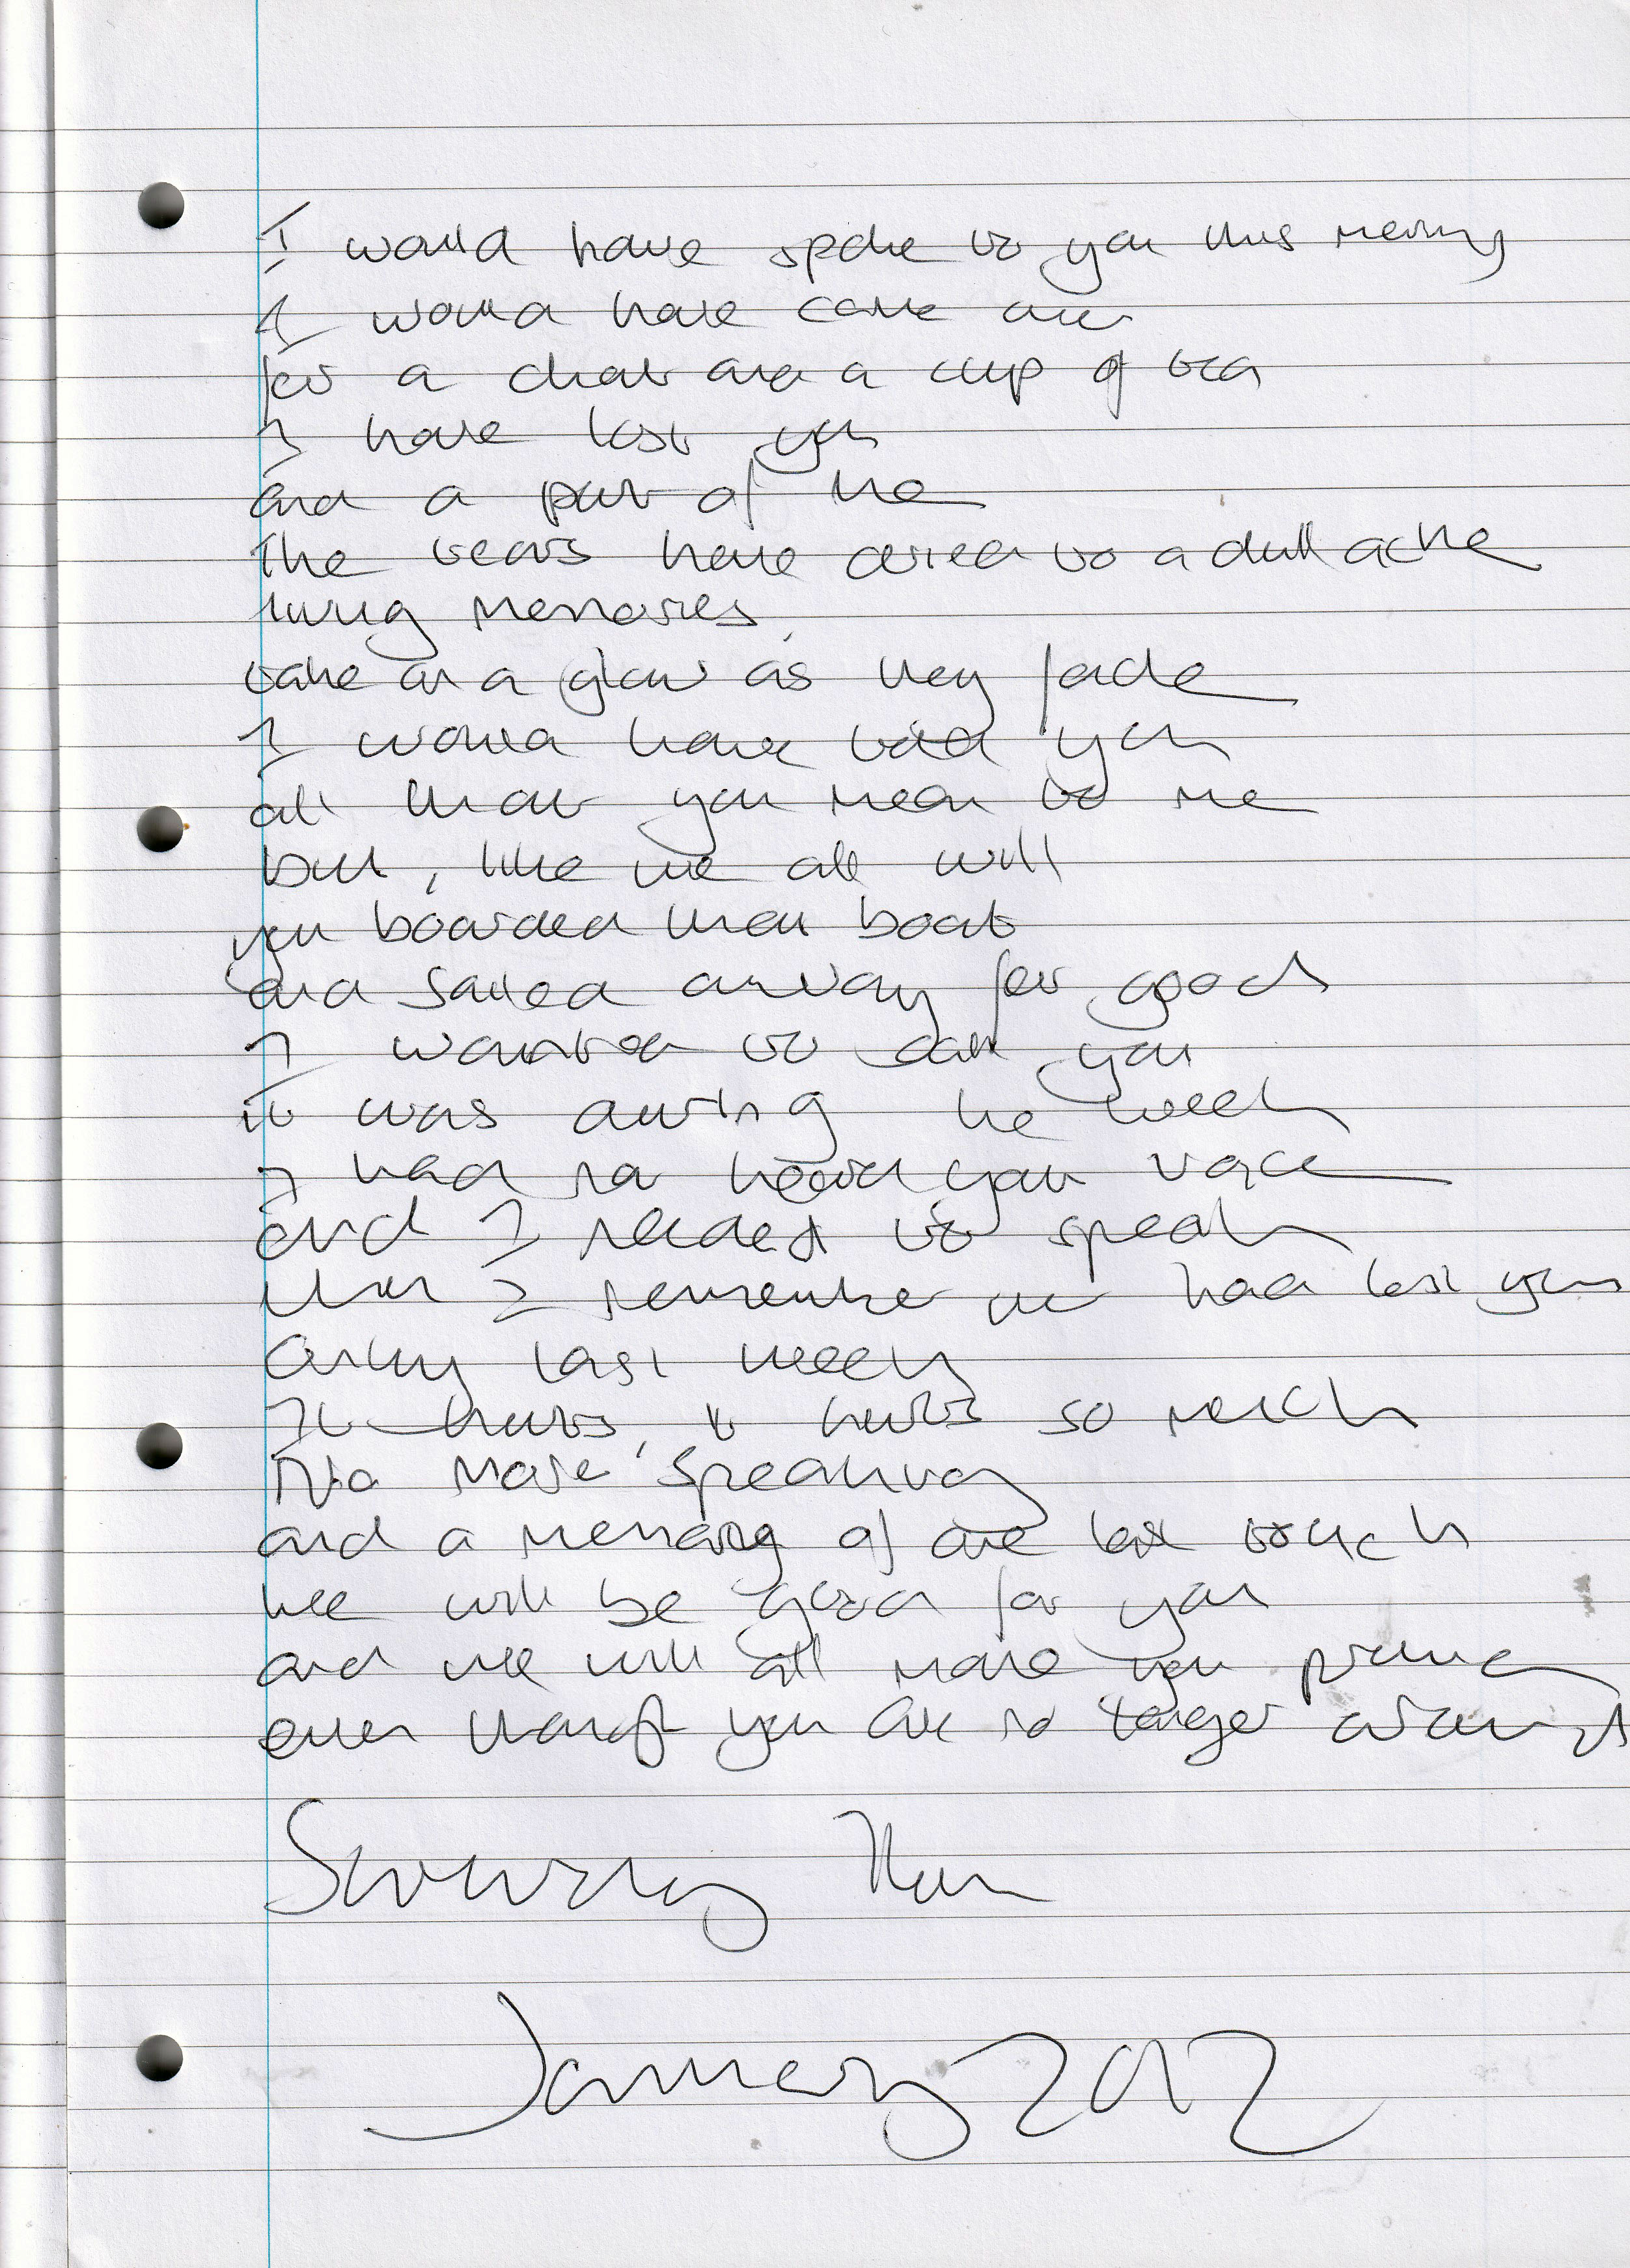 I would have spoke to you this morning
I would have come over
for a chat and a cup of tea
I have lost you
and a part of me
The tears have dried to a dull ache
living memories
take on a glow as they fade
I would have told you
all that you mean to me
but, like we all will
you boarded that boat
and sailed away for good
I wanted to call you
it was during the week
I had not heard your voice
and I needed to speak
then I remember we had lost you
only last week
It hurts, it hurts so much
No more speaking
and a memory of one last touch
we will be good for you
and we will all make you proud
even though you are no longer around
January 2012